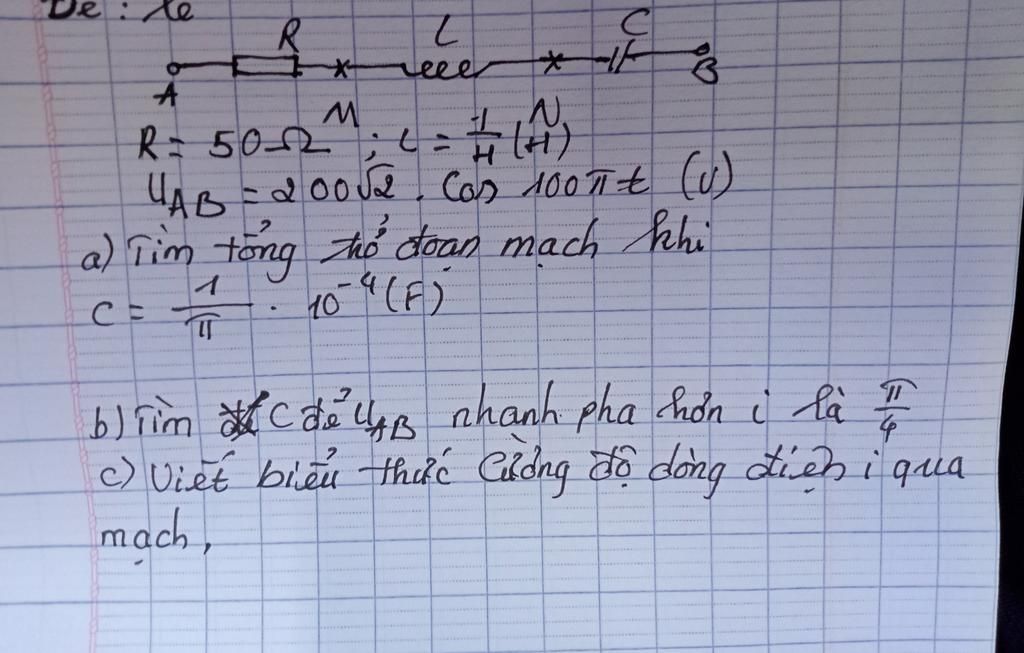 Đề: Xe
R L C
A M N B
R = 50Ω ; L = 1/π (H)
U_AB = 200√2 . Cos 100πt (V)
a) Tìm tổng trở đoạn mạch khi
C = 1/π . 10⁻⁴ (F)
b) Tìm C để U_AB nhanh pha hơn i là π/4
c) Viết biểu thức Cường độ dòng điện i qua
mạch,